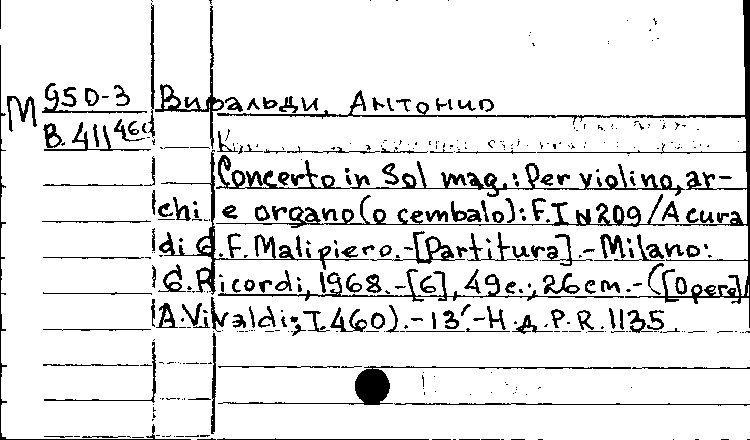 М 950-3 Вивальди, Антонио
В.411 460
Concerto in Sol mag.: Per violino, ar-
chi e organo (o cembalo): F.I N 209 / A cura
di G.F. Malipiero. - [Partitura]. - Milano:
G. Ricordi, 1968. - [6], 49 c.; 26 cm. - ([Opere]/
A. Vivaldi; T. 460). - 13'. - Н.д. P.R. 1135.